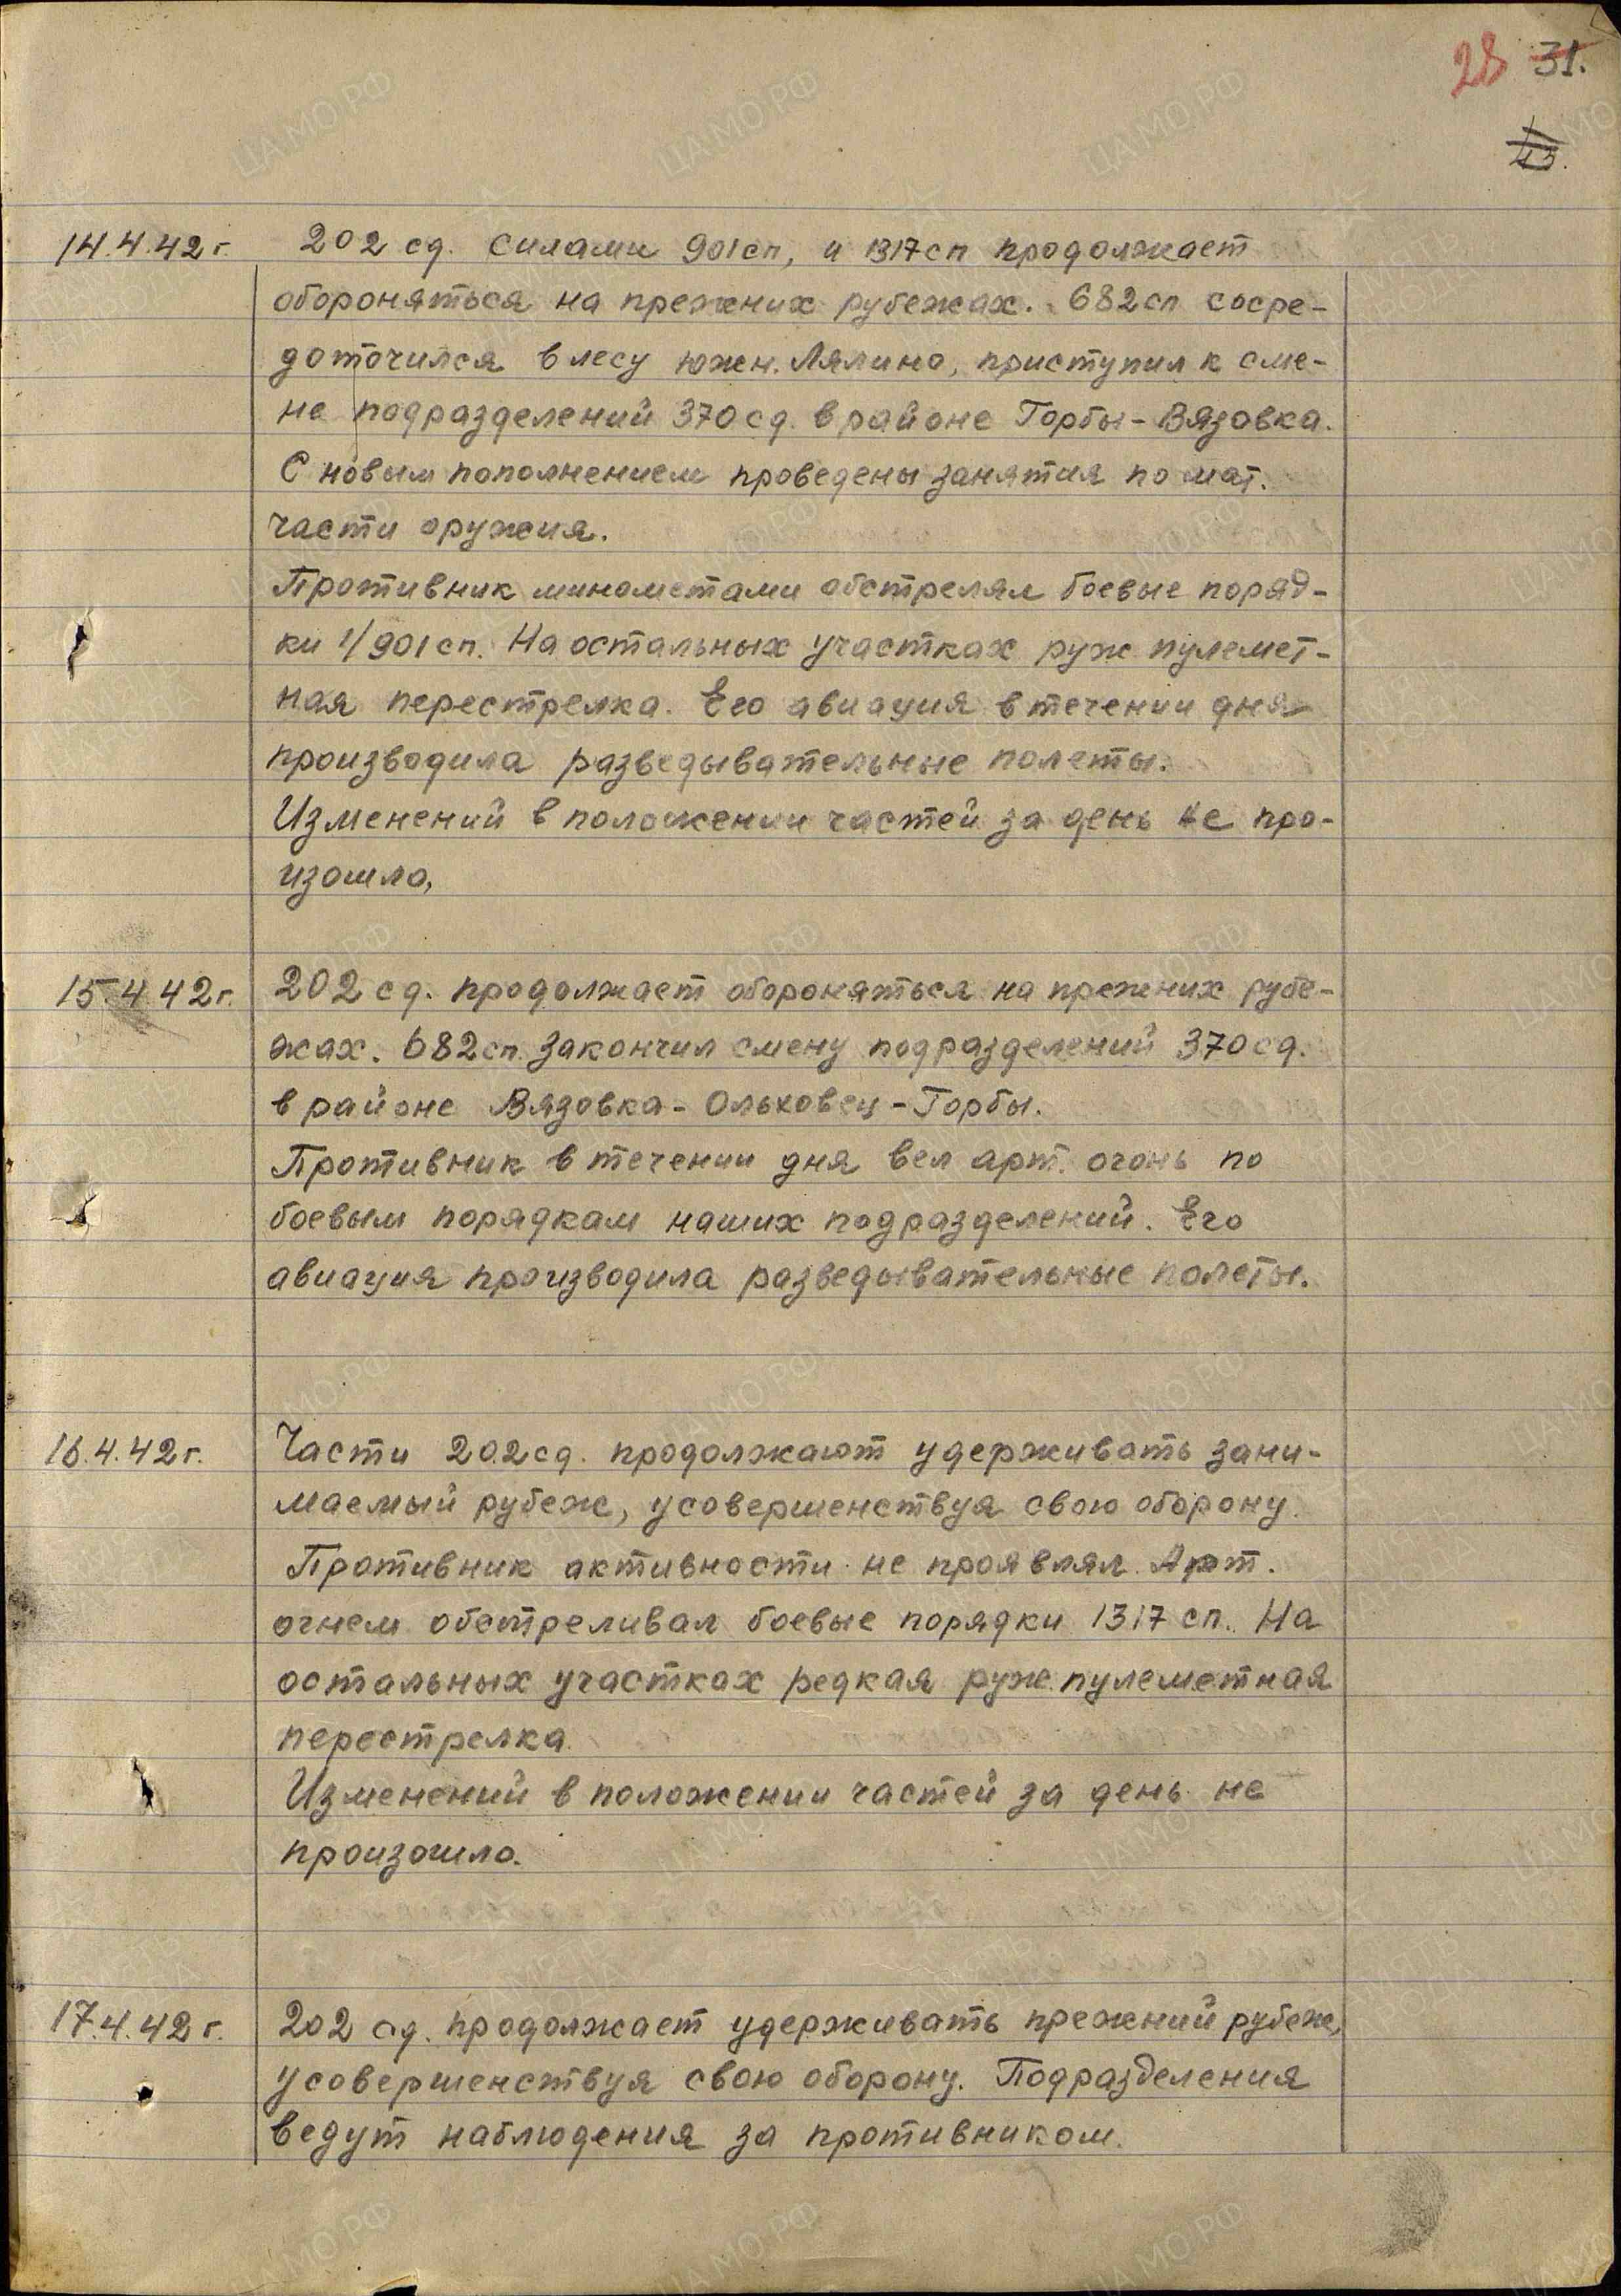 28 31.
43.
14.4.42 г. 202 сд. силами 901 сп, и 1317 сп продолжает
обороняться на прежних рубежах. 682 сп сосре-
доточился в лесу южн. Лялино, приступил к сме-
не подразделений 370 сд. в районе Горбы - Вязовка.
С новым пополнением проведены занятия по мат.
части оружия.
Противник минометами обстрелял боевые поряд-
ки 1/901 сп. На остальных участках руж пулемет-
ная перестрелка. Его авиация в течении дня
производила разведывательные полеты.
Изменений в положении частей за день не про-
изошло,
15.4 42 г. 202 сд. продолжает обороняться на прежних рубе-
жах. 682 сп. закончил смену подразделений 370 сд.
в районе Вязовка - Ольховец - Горбы.
Противник в течении дня вел арт. огонь по
боевым порядкам наших подразделений. Его
авиация производила разведывательные полеты.
16.4.42 г. Части 202 сд. продолжают удерживать зани-
маемый рубеж, усовершенствуя свою оборону.
Противник активности не проявлял. Арт.
огнем обстреливал боевые порядки 1317 сп. На
остальных участках редкая руж. пулеметная
перестрелка.
Изменений в положении частей за день не
произошло.
17.4.42 г. 202 сд. продолжает удерживать прежний рубеж,
усовершенствуя свою оборону. Подразделения
ведут наблюдения за противником.